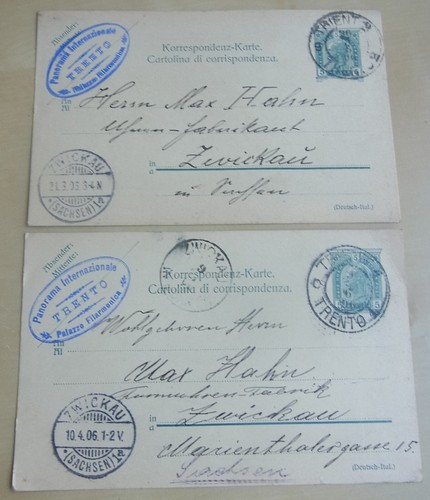 Absender:
Panorama Internazionale
TRENTO
Palazzo Filarmonica
Korrespondenz-Karte.
Cartolina di corrispondenza.
TRIENT 2
5
An
Al
Herrn Max Hahn
Uhren-Fabrikant
in
a
Zwickau
in Sachsen
ZWICKAU
(SACHSEN)
(Deutsch-Ital.)
Absender:
Mittente:
Panorama Internazionale
TRENTO
Palazzo Filarmonica
ZWICKAU
Korrespondenz-Karte.
Cartolina di corrispondenza.
TRENTO
5
An
Al
Wohlgeboren Herrn
Max Hahn
in
a
Zwickau
Marienthalergasse 15.
Sachsen
ZWICKAU
10.4.06.1-2V.
(SACHSEN)
(Deutsch-Ital.)